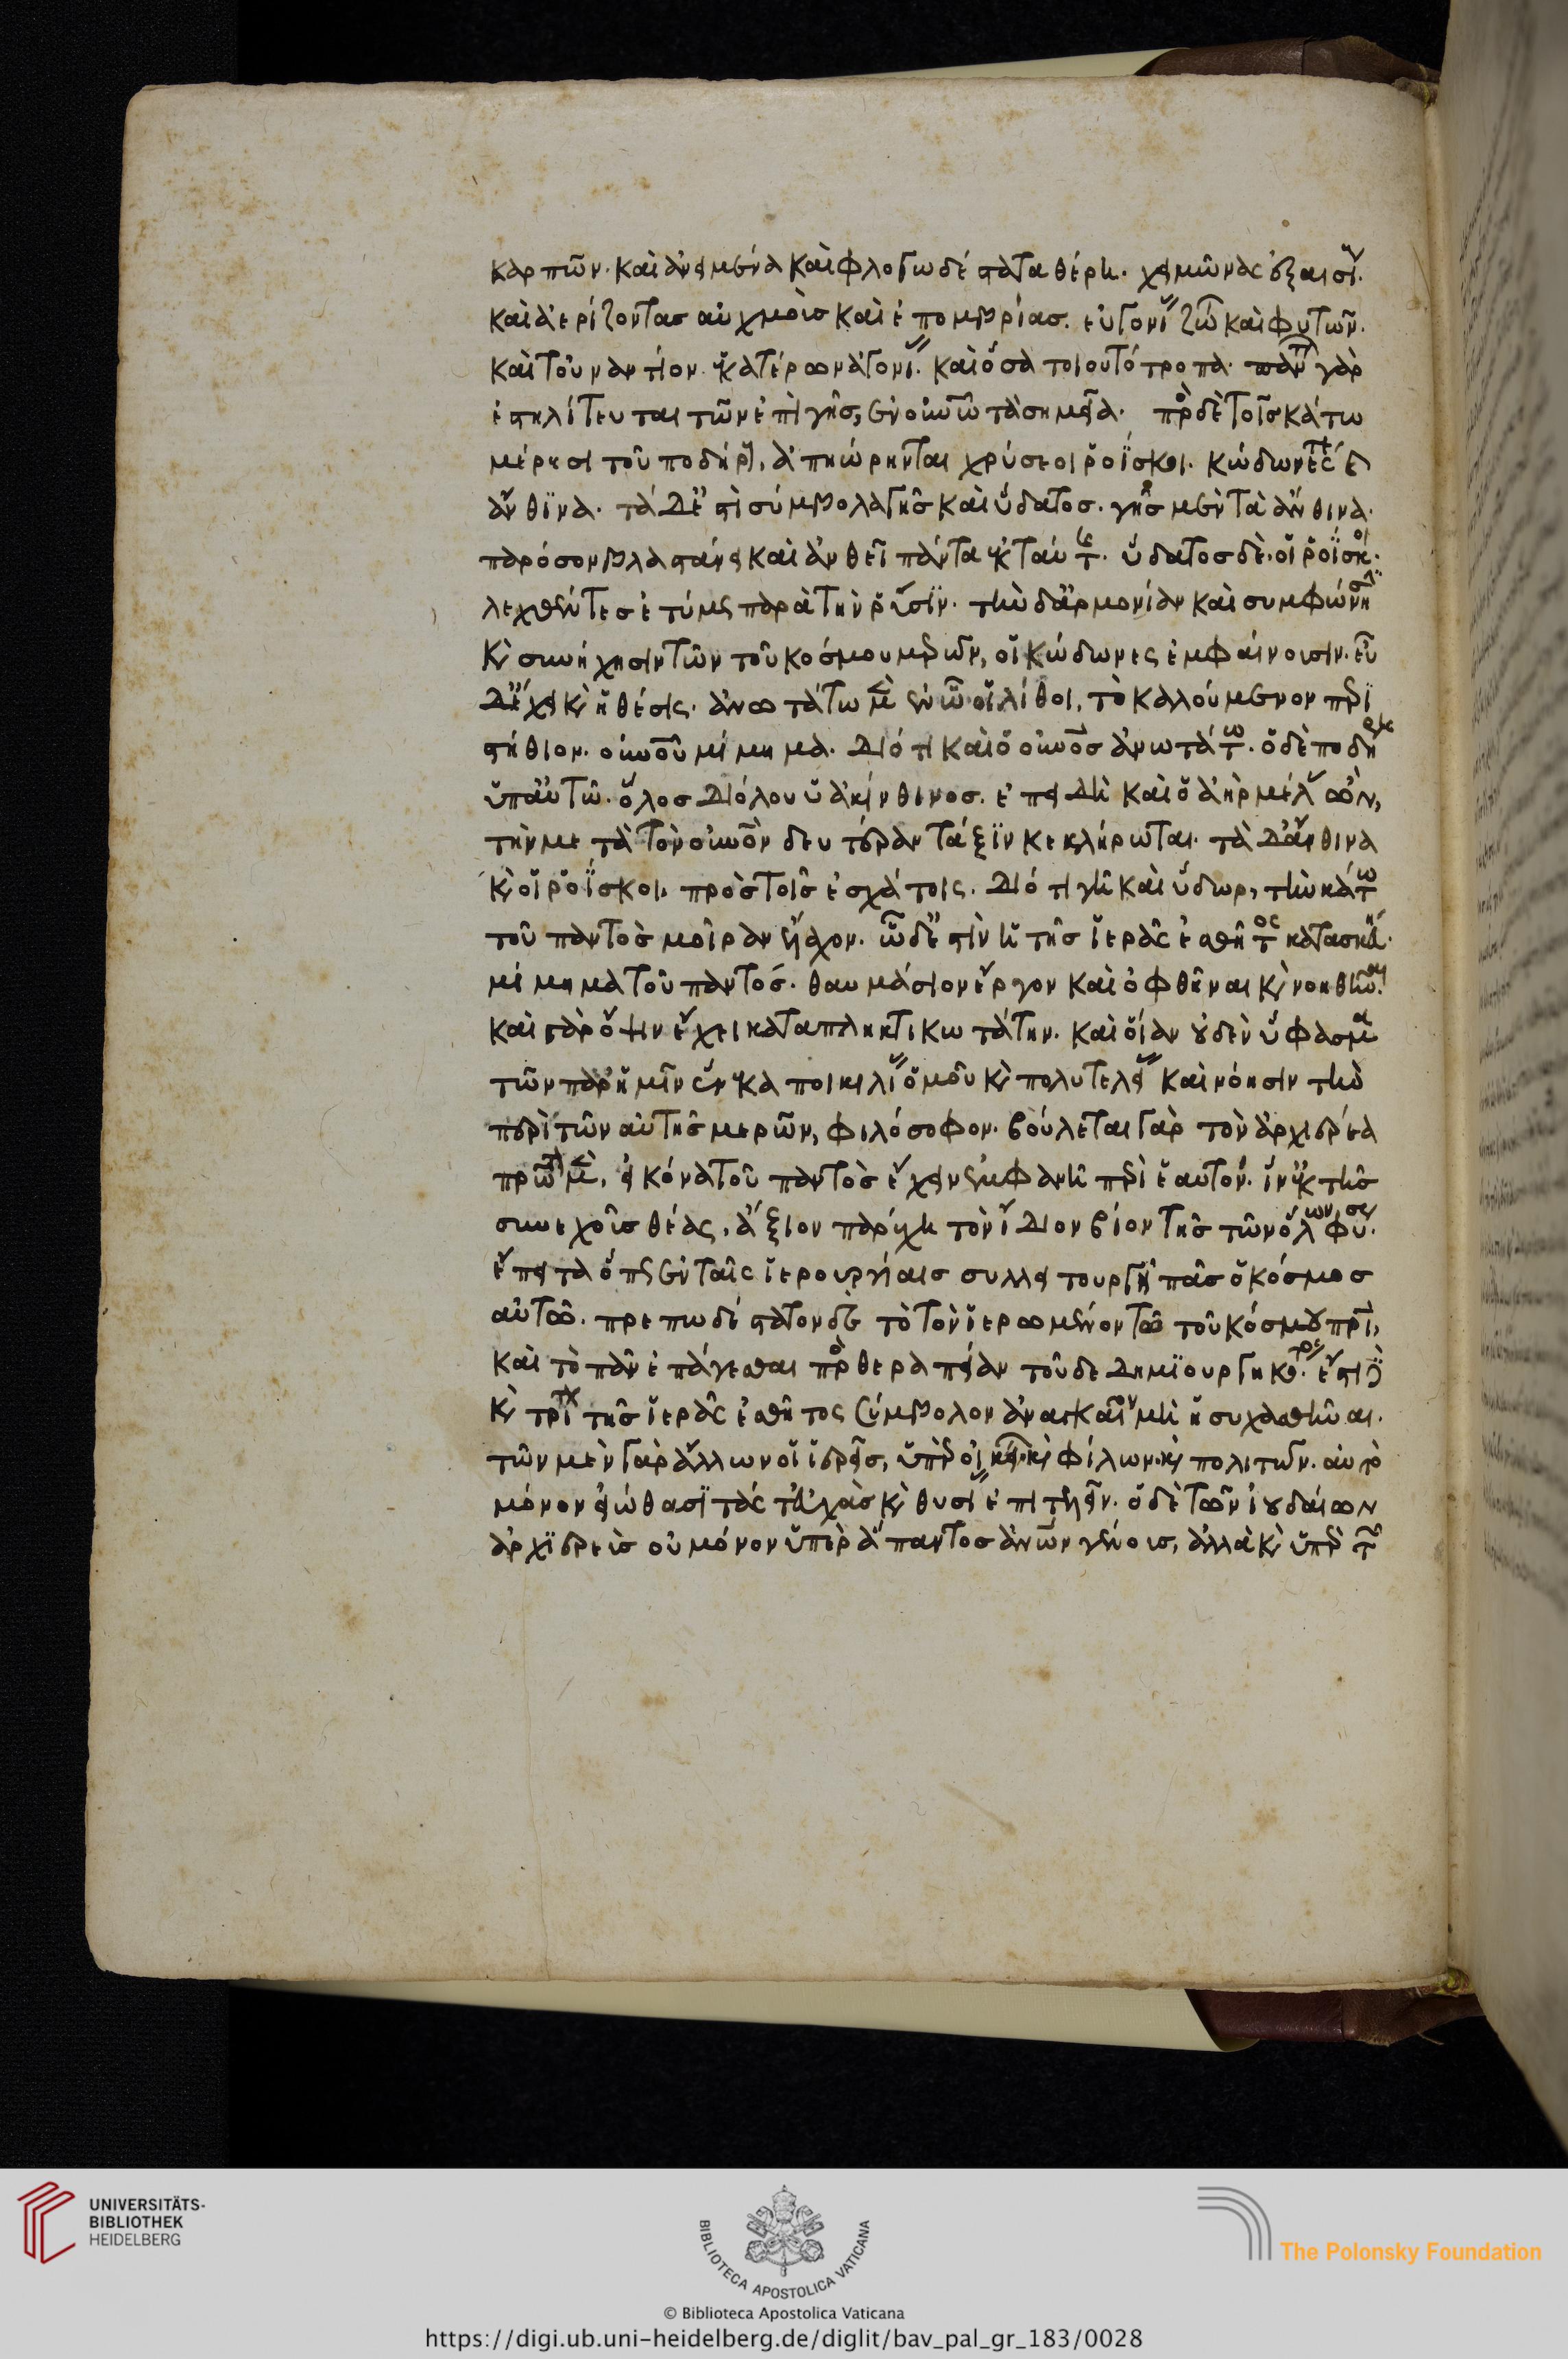 καρπῶν. καὶ ἀνειμένα καὶ φλογωδέστατα θέρη. χειμῶνας ἐξαισί(ους).
καὶ ἀερίζοντας αὐχμοὺς καὶ ἐπομβρίας. εὐγονί(ας) ζώ(ων) καὶ φυτῶν.
καὶ τοὐναντίον ἑκατέρων ἀγονί(ας). καὶ ὅσα τοιουτότροπα. πάντ(ων) γὰρ
ἐστηλίτευται τῶν ἐπὶ γῆς, ἐν οὐνῶ τὰ σημεῖα. πρὸ(ς) δὲ τοῖς κάτω
μέρεσι τοῦ ποδήρ(ους), ἀπηώρηνται χρύσεοι ῥοΐσκοι. κώδωνές τε κ(αὶ)
ἄνθϊνα. τὰ δέ ἐστι σύμβολα γῆς καὶ ὕδατος. γῆς μὲν τὰ ἄνθινα.
παρόσον βλαστάνει καὶ ἀνθεῖ πάντα ἐκ ταύτ(ης). ὕδατος δὲ. οἱ ῥοΐσκοι.
λεχθέντες ἐτύμως παρὰ τὴν ῥύσϊν. τὴν δ' ἁρμονίαν καὶ συμφών(ησιν)
κ(αὶ) συνήχησιν τῶν τοῦ κόσμου μερῶν, οἱ κώδωνες ἐμφαίνουσιν. εὖ
δ' ἔχει κ(αὶ) ἡ θέσις. ἀνωτάτω μὲν ἐν ὧ οἱ λίθοι, τὸ καλούμενον περὶ
στήθιον. οὐνοῦ μίμημα. διότι καὶ ὁ οὐνὸς ἀνωτάτω. ὁ δὲ ποδήρης
ὑπ' αὐτῶ. ὅλος δι' ὅλου ὑακίνθινος. ἐπειδὴ καὶ ὁ ἀὴρ μέλας ὢν,
τὴν μετὰ τὸν οὐνὸν δευτέραν τάξϊν κεκλήρωται. τὰ δ' ἄνθινα
κ(αὶ) οἱ ῥοΐσκοι. πρὸς τοῖς ἐσχάτοις. διότι γῆ καὶ ὕδωρ, τὴν κάτω
τοῦ παντὸς μοῖραν ἔλαχον. ὧδέ ἐστὶν ἡ τῆς ἱερᾶς ἐσθῆτος κατασκευή.
μίμημα τοῦ παντός. θαυμάσιον ἔργον καὶ ὀφθῆναι κ(αὶ) νοηθῆναι.
καὶ γὰρ ὄψιν ἔχει καταπληκτικωτάτην. καὶ οἵαν οὐδὲν ὕφασμα
τῶν παρ' ἡμῖν ἕνεκα ποικιλί(ας) ὁμοῦ κ(αὶ) πολυτελεί(ας) καὶ νόησιν τὴν
περὶ τῶν αὐτῆς μερῶν, φιλόσοφον. βούλεται γὰρ τὸν ἀρχιερέα
πρῶτ(ον) μὲν, εἰκόνα τοῦ παντὸς ἔχειν ἐμφανῆ περὶ ἑαυτόν. ἵν' ἐκ τῆς
συνεχοῦς θέας, ἄξιον παρέχη τὸν ἴδιον βίον τῆς τῶν ὅλων φύσεως.
ἔπειτα ὅπως ἐν ταῖς ἱερουργίαις συλλειτουργῆ πᾶς ὁ κόσμος
αὐτῶ. πρεπωδέστατον δὲ τὸ τὸν ἱερωμένον τῶ τοῦ κόσμου πρὶ,
καὶ τὸ πᾶν ἐπάγεσθαι πρὸ(ς) θεραπείαν τοῦ δεδημϊουργηκότος. ἔστι δὲ
κ(αὶ) τρίτ(ον) τῆς ἱερᾶς ἐσθῆτος σύμβολον ἀναγκαῖον μὴ ἡσυχασθῆναι.
τῶν μὲν γὰρ ἄλλων οἱ ἱερεῖς, ὑπὲρ οἰκεί(ων) κ(αὶ) φίλων κ(αὶ) πολιτῶν. αὐτὸ
μόνον εἰώθασϊ τάς τ' εὐχὰς κ(αὶ) θυσί(ας) ἐπιτελεῖν. ὁ δὲ τῶν ἰουδαίων
ἀρχϊερεὺς οὐ μόνον ὑπὲρ ἅπαντος ἀνων γένους, ἀλλὰ κ(αὶ) ὑπὲρ τῶν
UNIVERSITÄTS-
BIBLIOTHEK
HEIDELBERG
BIBLIOTECA APOSTOLICA VATICANA
The Polonsky Foundation
© Biblioteca Apostolica Vaticana
https://digi.ub.uni-heidelberg.de/diglit/bav_pal_gr_183/0028